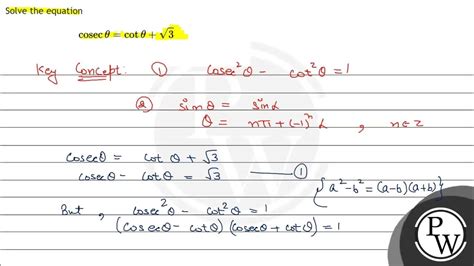 Solve the equation
cosec θ = cot θ + √3
Key Concept: ① cosec²θ - cot²θ = 1
② sinθ = sinα
θ = nπ + (-1)ⁿ α , n∈z
cosecθ = cotθ + √3
cosecθ - cotθ = √3 —— ①
{a²-b² = (a-b)(a+b)}
But, cosec²θ - cot²θ = 1
(cosecθ - cotθ)(cosecθ + cotθ) = 1
PW